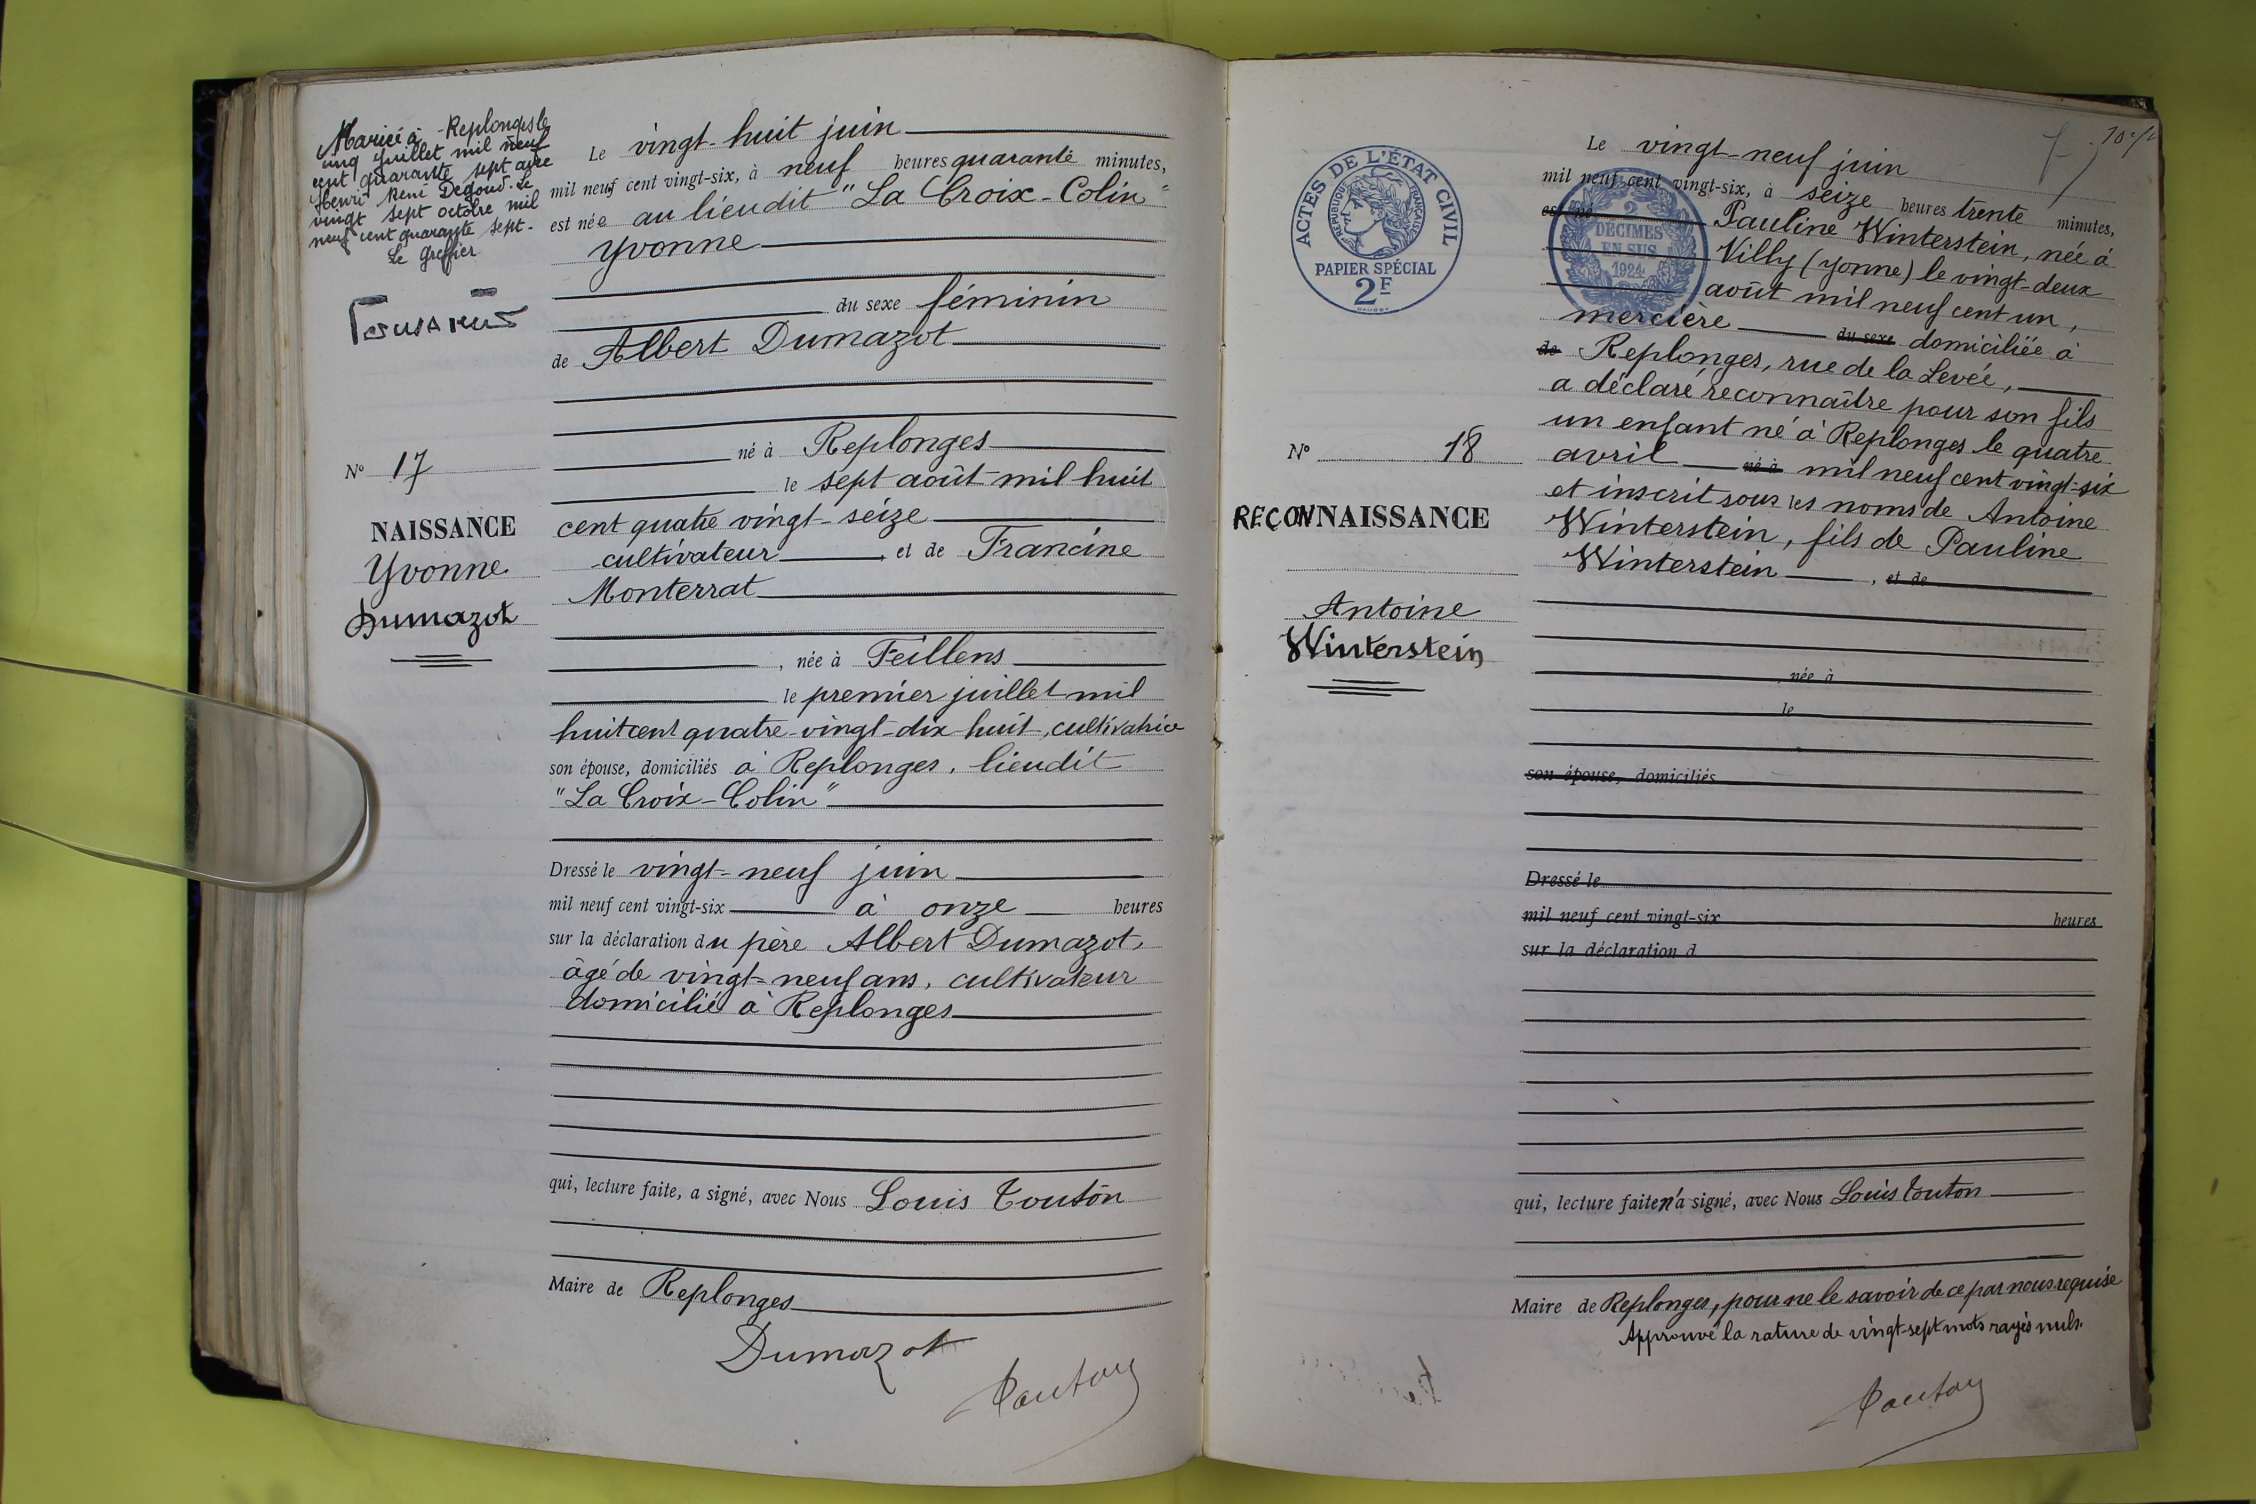 Mariée à Replonges le
cinq juillet mil neuf
cent quarante sept avec
Henri René Degoud. Le
vingt sept octobre mil
neuf cent quarante sept.
Le greffier
N° 17
NAISSANCE
Yvonne
Dumazot
Le vingt-huit juin
mil neuf cent vingt-six, à neuf heures quarante minutes,
est née au lieudit "La Croix-Colin"
Yvonne
du sexe féminin
de Albert Dumazot
né à Replonges
le sept août mil huit
cent quatre vingt-seize
cultivateur, et de Francine
Monterrat
, née à Feillens
le premier juillet mil
huit cent quatre-vingt-dix-huit, cultivatrice
son épouse, domiciliés à Replonges, lieudit
"La Croix-Colin"
Dressé le vingt-neuf juin
mil neuf cent vingt-six à onze heures
sur la déclaration du père Albert Dumazot,
âgé de vingt-neuf ans, cultivateur
domicilié à Replonges
qui, lecture faite, a signé, avec Nous Louis Touton
Maire de Replonges
Dumazot
Touton
ACTES DE L'ÉTAT CIVIL
RÉPUBLIQUE FRANÇAISE
PAPIER SPÉCIAL
2F
2
DÉCIMES
EN SUS
1924
N° 18
RECONNAISSANCE
Antoine
Winterstein
Le vingt-neuf juin
mil neuf cent vingt-six, à seize heures trente minutes,
est né Pauline Winterstein, née à
Villy (Yonne) le vingt-deux
août mil neuf cent un,
mercière du sexe domiciliée à
de Replonges, rue de la Levée,
a déclaré reconnaître pour son fils
un enfant né à Replonges le quatre
avril né à mil neuf cent vingt-six
et inscrit sous les noms de Antoine
Winterstein, fils de Pauline
Winterstein, et de
, née à
le
son épouse, domiciliés
Dressé le
mil neuf cent vingt-six heures
sur la déclaration d
qui, lecture faite n'a signé, avec Nous Louis Touton
Maire de Replonges, pour ne le savoir de ce par nous requise
Approuvé la rature de vingt-sept mots rayés nuls.
Touton